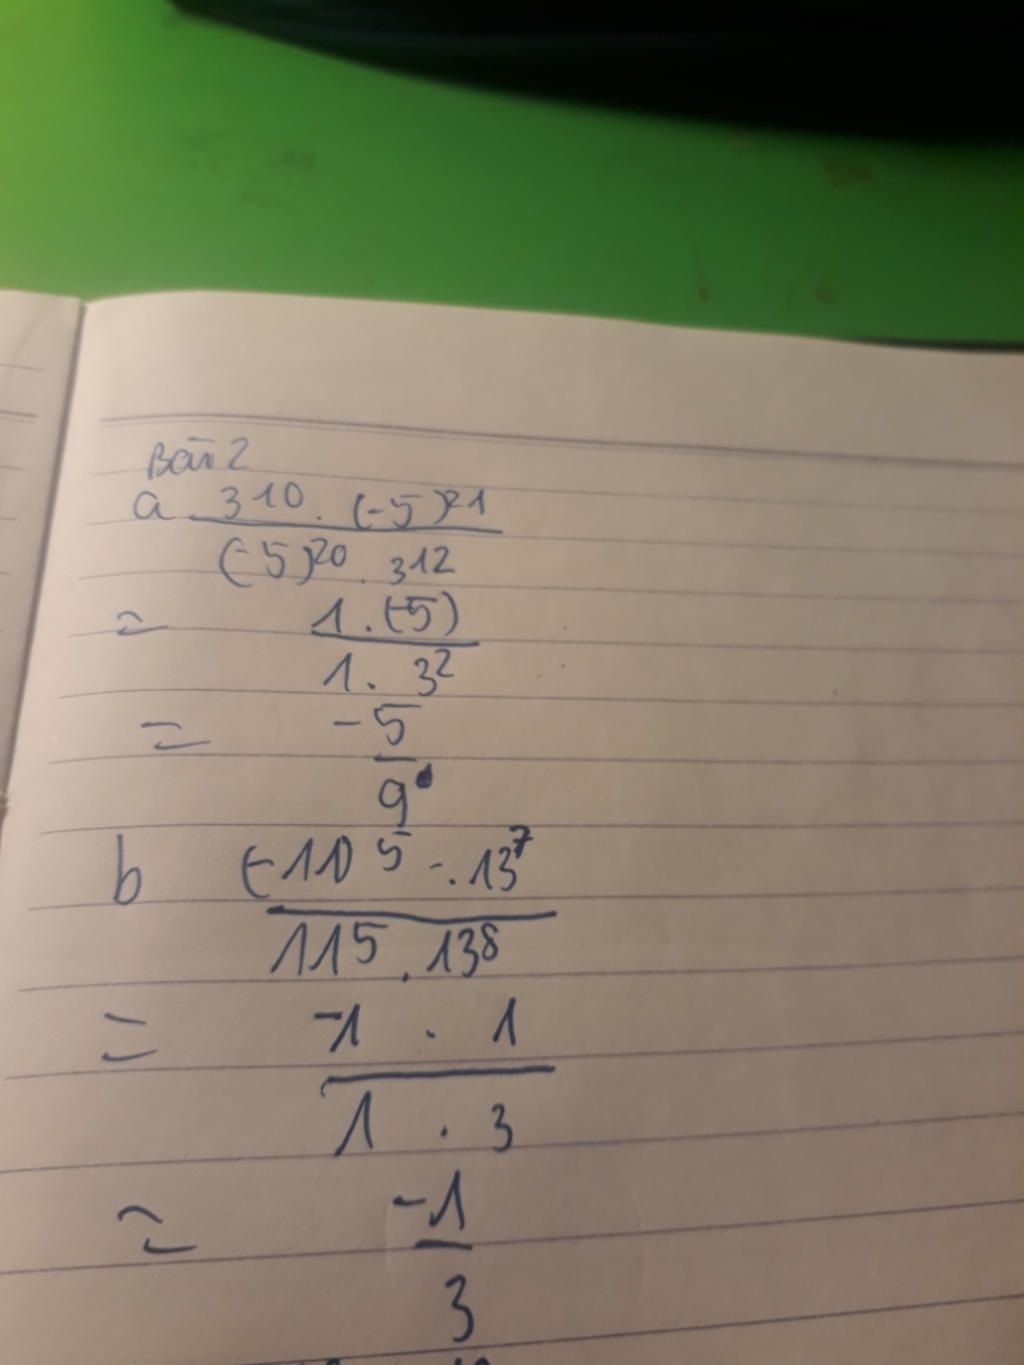 Bài 2
a 3¹⁰ . (-5)²¹
(-5)²⁰ . 3¹²
= 1 . (-5)
1 . 3²
= -5
9
b (-11)⁵ . 13⁷
11⁵ . 13⁸
= -1 . 1
1 . 3
= -1
3